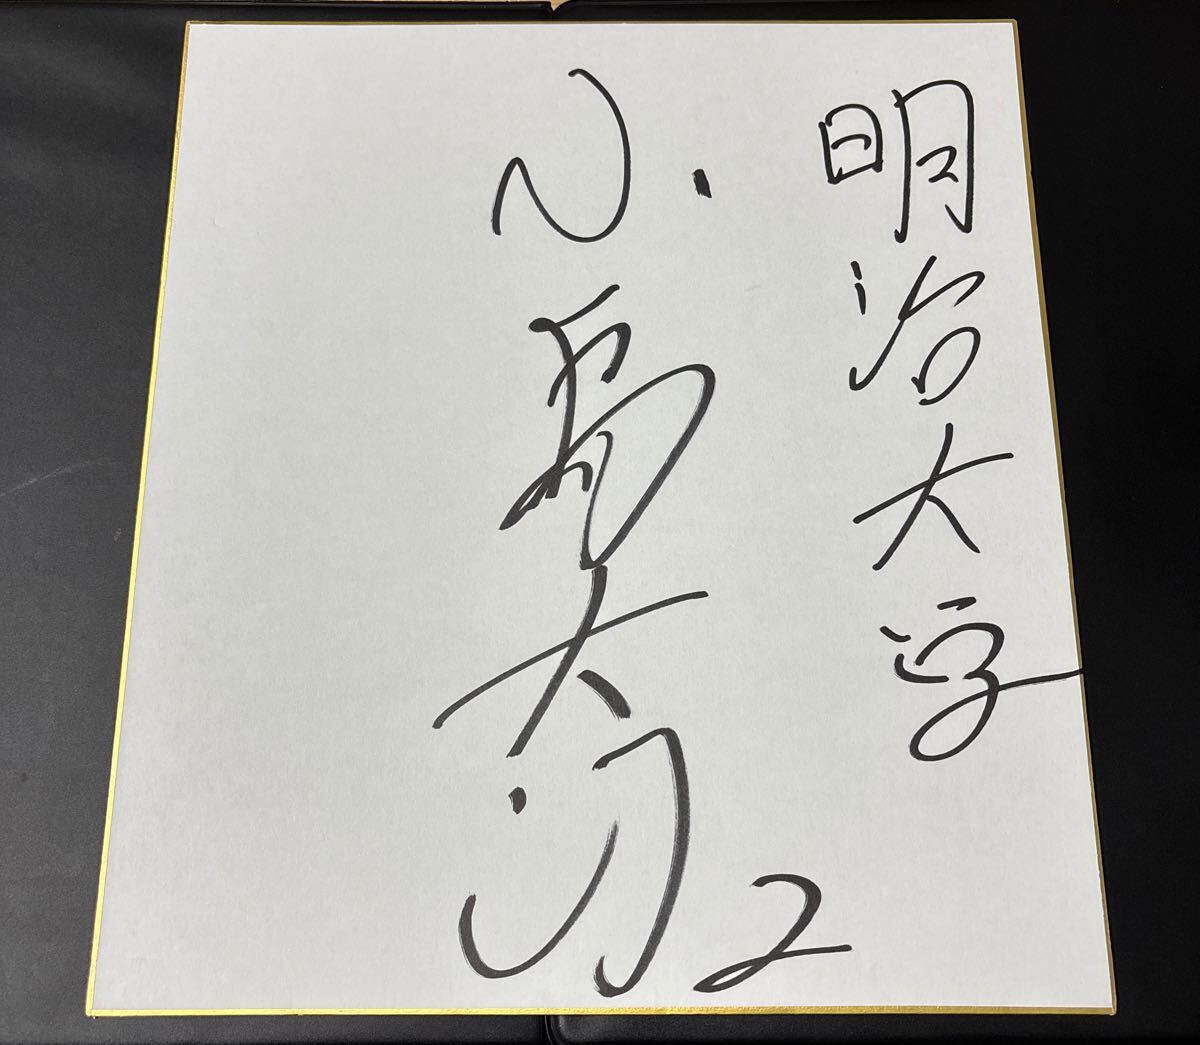 明治大学
小島大河
2